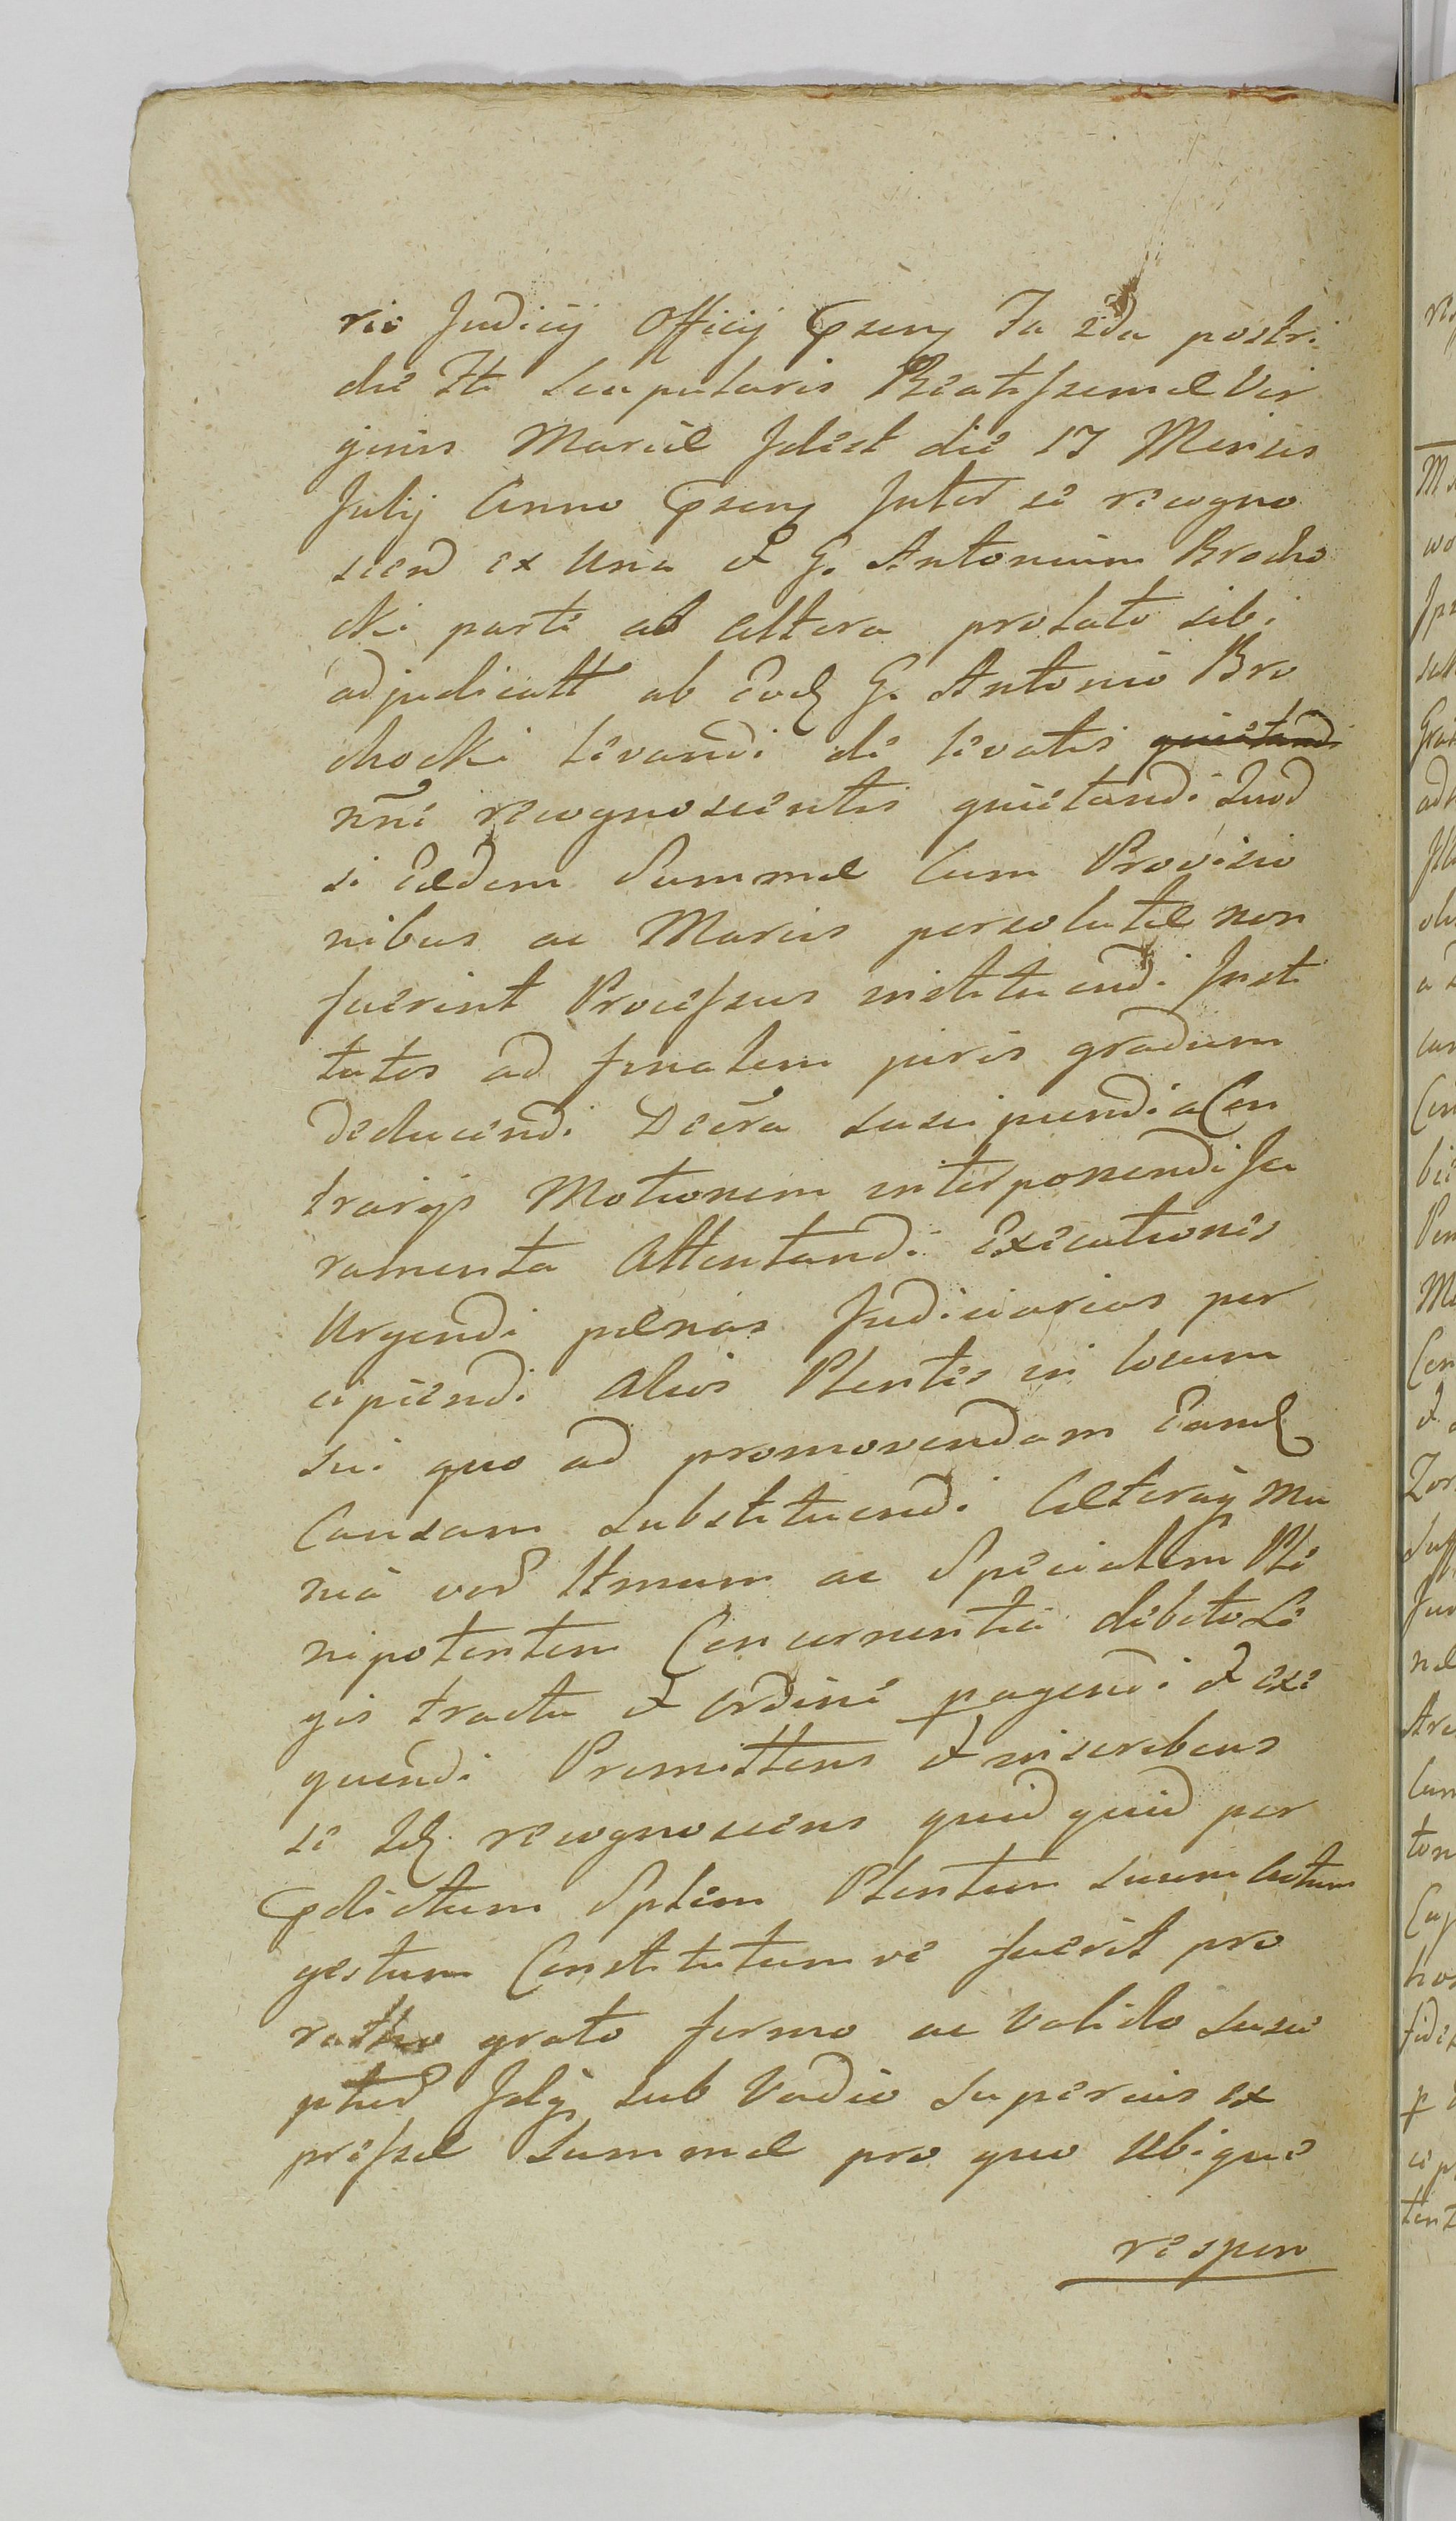 ris Judicij Officij psenę Fa 2da postri
die fti Scapularis Beatissimæ Vir
ginis Mariæ Idest die 17 Mensis
Julij Anno psenę Inter se recogno
scend ex Una et G. Antonium Brocho
cki parte ab altera prolato sibi
adjudicatt ab Eodę G. Antonio Bro
chocki levandi de levatis quietandi
nñe recognoscentis quietandi Quod
si Eædem Summæ Cum Provisio
nibus ac Marcis persolutæ non
fuerint Processus instituendi Insti
tutos ad finalem juris gradum
deducendi Decra suscipiendi a Con
trarijs Motionem interponendi Ju
ramenta Attentandi Executiones
Urgendi pænas Judiciarias per
cipiendi Alios Plentes in locum
sui quo ad promovendam Eandę
Causam Substituendi Cæteraq Mu
nia verd ltmum ac Specialem Ple
nipotentem Concernentia debito Le
gis tractu et Ordine pagendi et exe
quendi Promittens et inscribens
se Idę recognoscens quid quid per
pdictum Splem Plentem suum Actum
gestum Constitutum ve fuerit pro
ratho grato firmo ac Valido susce
pturd Idq sub Vadio superius ex
pressæ Summæ pro quo Ubique
respon